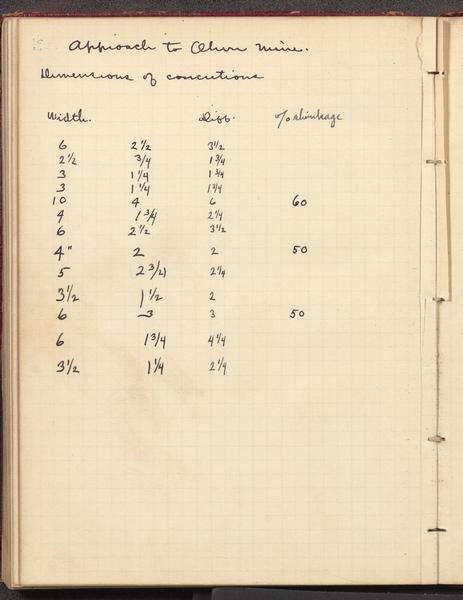 Approach to Oliver mine.
Dimensions of concretions
Width. Diff. % shrinkage
6 2 1/2 3 1/2
2 1/2 3/4 1 3/4
3 1 1/4 1 3/4
3 1 1/4 1 3/4
10 4 6 60
4 1 3/4 2 1/4
6 2 1/2 3 1/2
4" 2 2 50
5 2 3/4 2 1/4
3 1/2 1 1/2 2
6 3 3 50
6 1 3/4 4 1/4
3 1/2 1 1/4 2 1/4